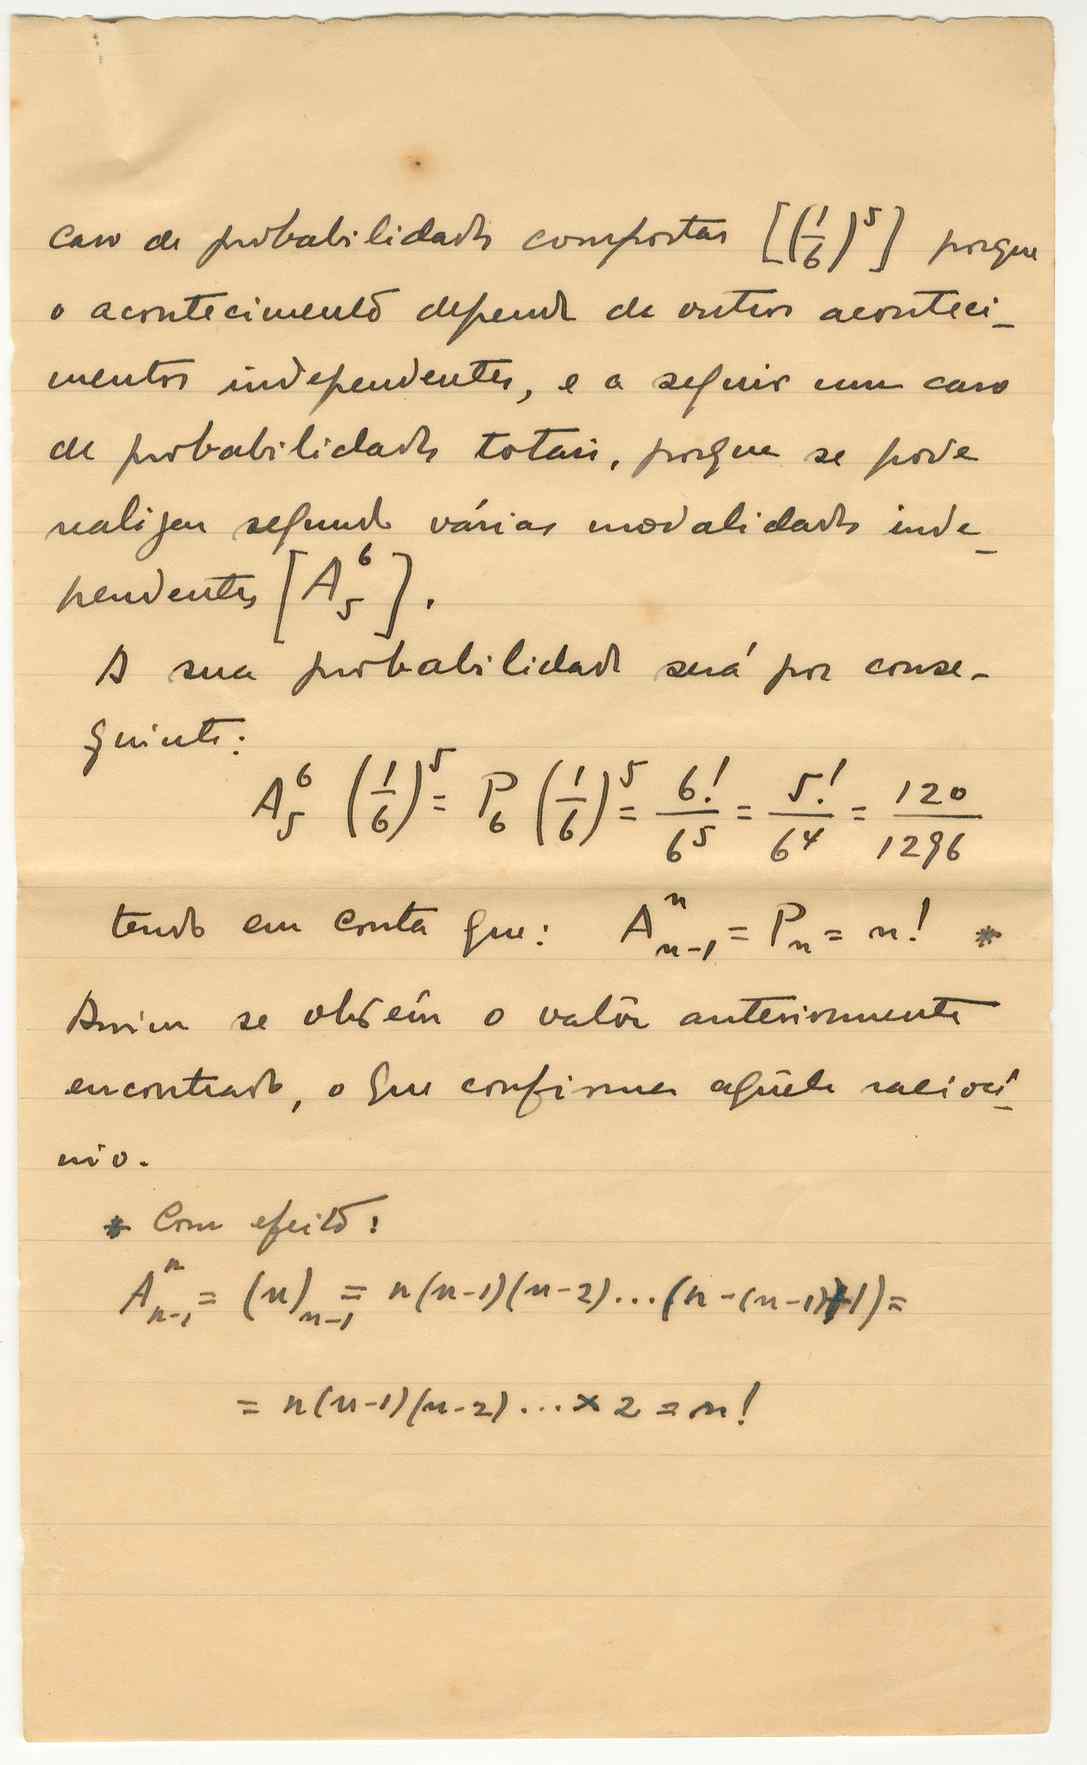 caso de probabilidades compostas [(1/6)^5] porque
o acontecimento depende de outros aconteci-
mentos independentes, e a seguir um caso
de probabilidades totais, porque se pode
realizar segundo várias modalidades inde-
pendentes [A^6_5].
A sua probabilidade será por conse-
guinte:
A^6_5 (1/6)^5 = P_6 (1/6)^5 = 6!/6^5 = 5!/6^4 = 120/1296
tendo em conta que: A^n_{n-1} = P_n = n! *
Assim se obtém o valôr anteriormente
encontrado, o que confirma aquêle raciocí-
nio.
* Com efeito:
A^n_{n-1} = (n)_{n-1} = n(n-1)(n-2)...(n-(n-1)+1) =
= n(n-1)(n-2)... × 2 = n!